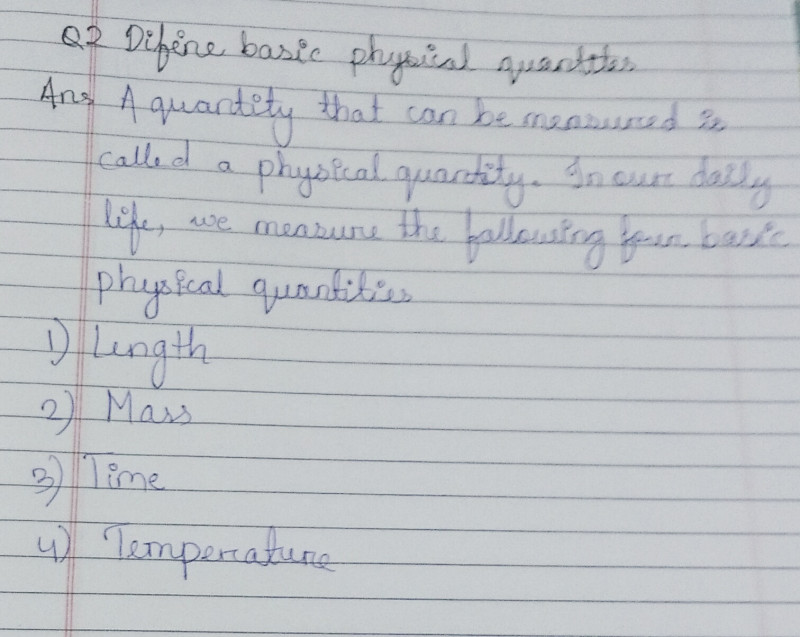 Q2 Difine basic physical quantites
Ans A quantity that can be measured is
called a physical quantity. In our daily
life, we measure the following four basic
physical quantities
1) Length
2) Mass
3) Time
4) Temperature